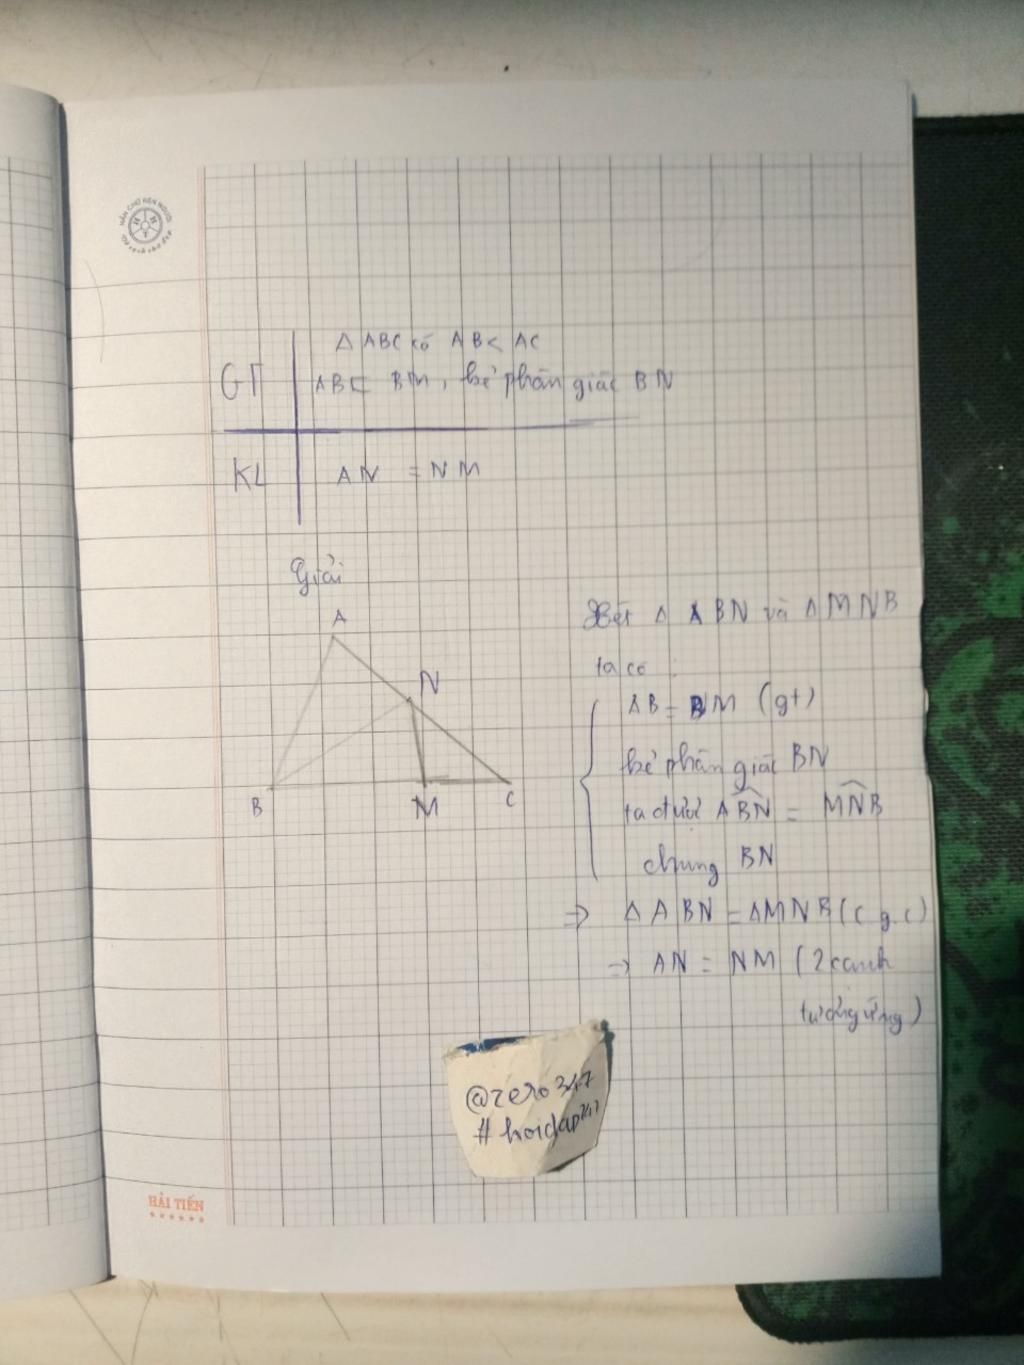 NÂN CHỮ NÊN NGƯỜI
Vở sạch chữ đẹp
Δ ABC có AB < AC
GT
AB = BM, kẻ phân giác BN
KL
AN = NM
Giải
A
N
B
M
C
Xét Δ ABN và Δ MNB
ta có :
AB = BM (gt)
kẻ phân giác BN
ta được ABN = MNB
chung BN
⇒ Δ ABN = ΔMNB (c.g.c)
⇒ AN = NM (2 cạnh
tương ứng)
@zero347
#hoidap247
HẢI TIẾN